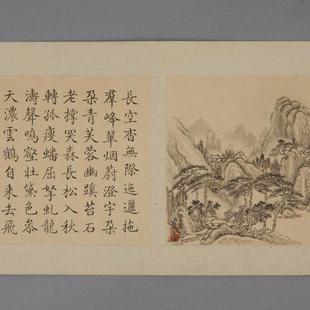 長空杳無際迤邐拖
羣峰翠烟蔚澄宇朶
朶青芙蓉幽蹊苔石
老撐突森長松入秋
轉孤瘦蟠屈拏虬龍
濤聲鳴壑壯黛色叅
天濃雲鶴自来去飛